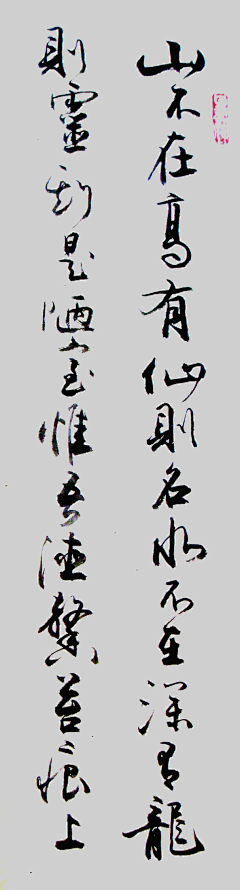 山不在高有仙則名水不在深有龍
則靈斯是陋室惟吾德馨苔痕上